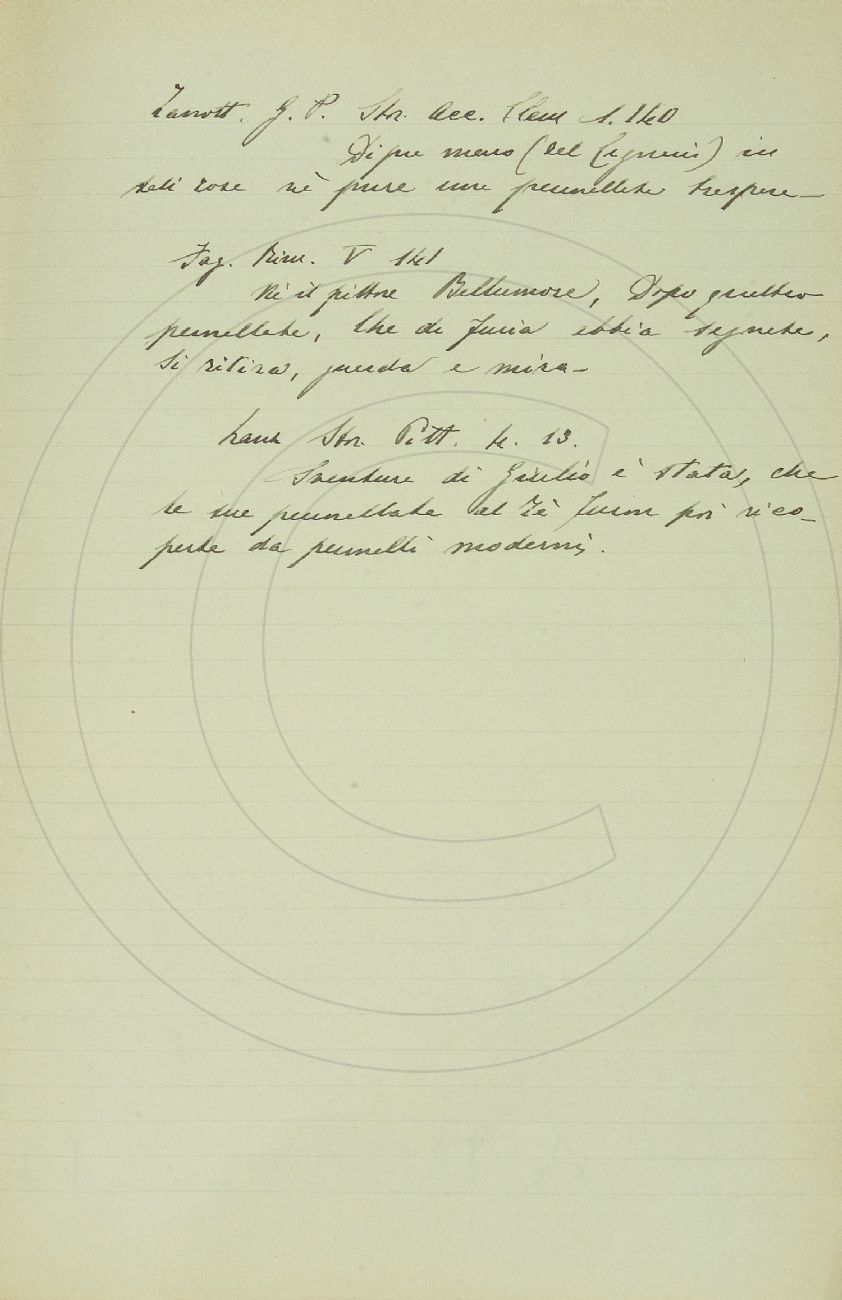 Zanott. G. P. Stor. Acc. Clem 1. 140
Di sua mano (del Cignani) in
tali cose nè pure una pennellata
Fag. Rim. V 141
il pittore Bell'umore, Dopo quattro
pennellate, che di furia abbia segnate,
Si ritira, guarda e mira_
Lanz Stor. Pitt. 4. 13.
Sventura di Giulio è stata, che
le sue pennellate al Tè furon poi rico_
perte da pennelli moderni.